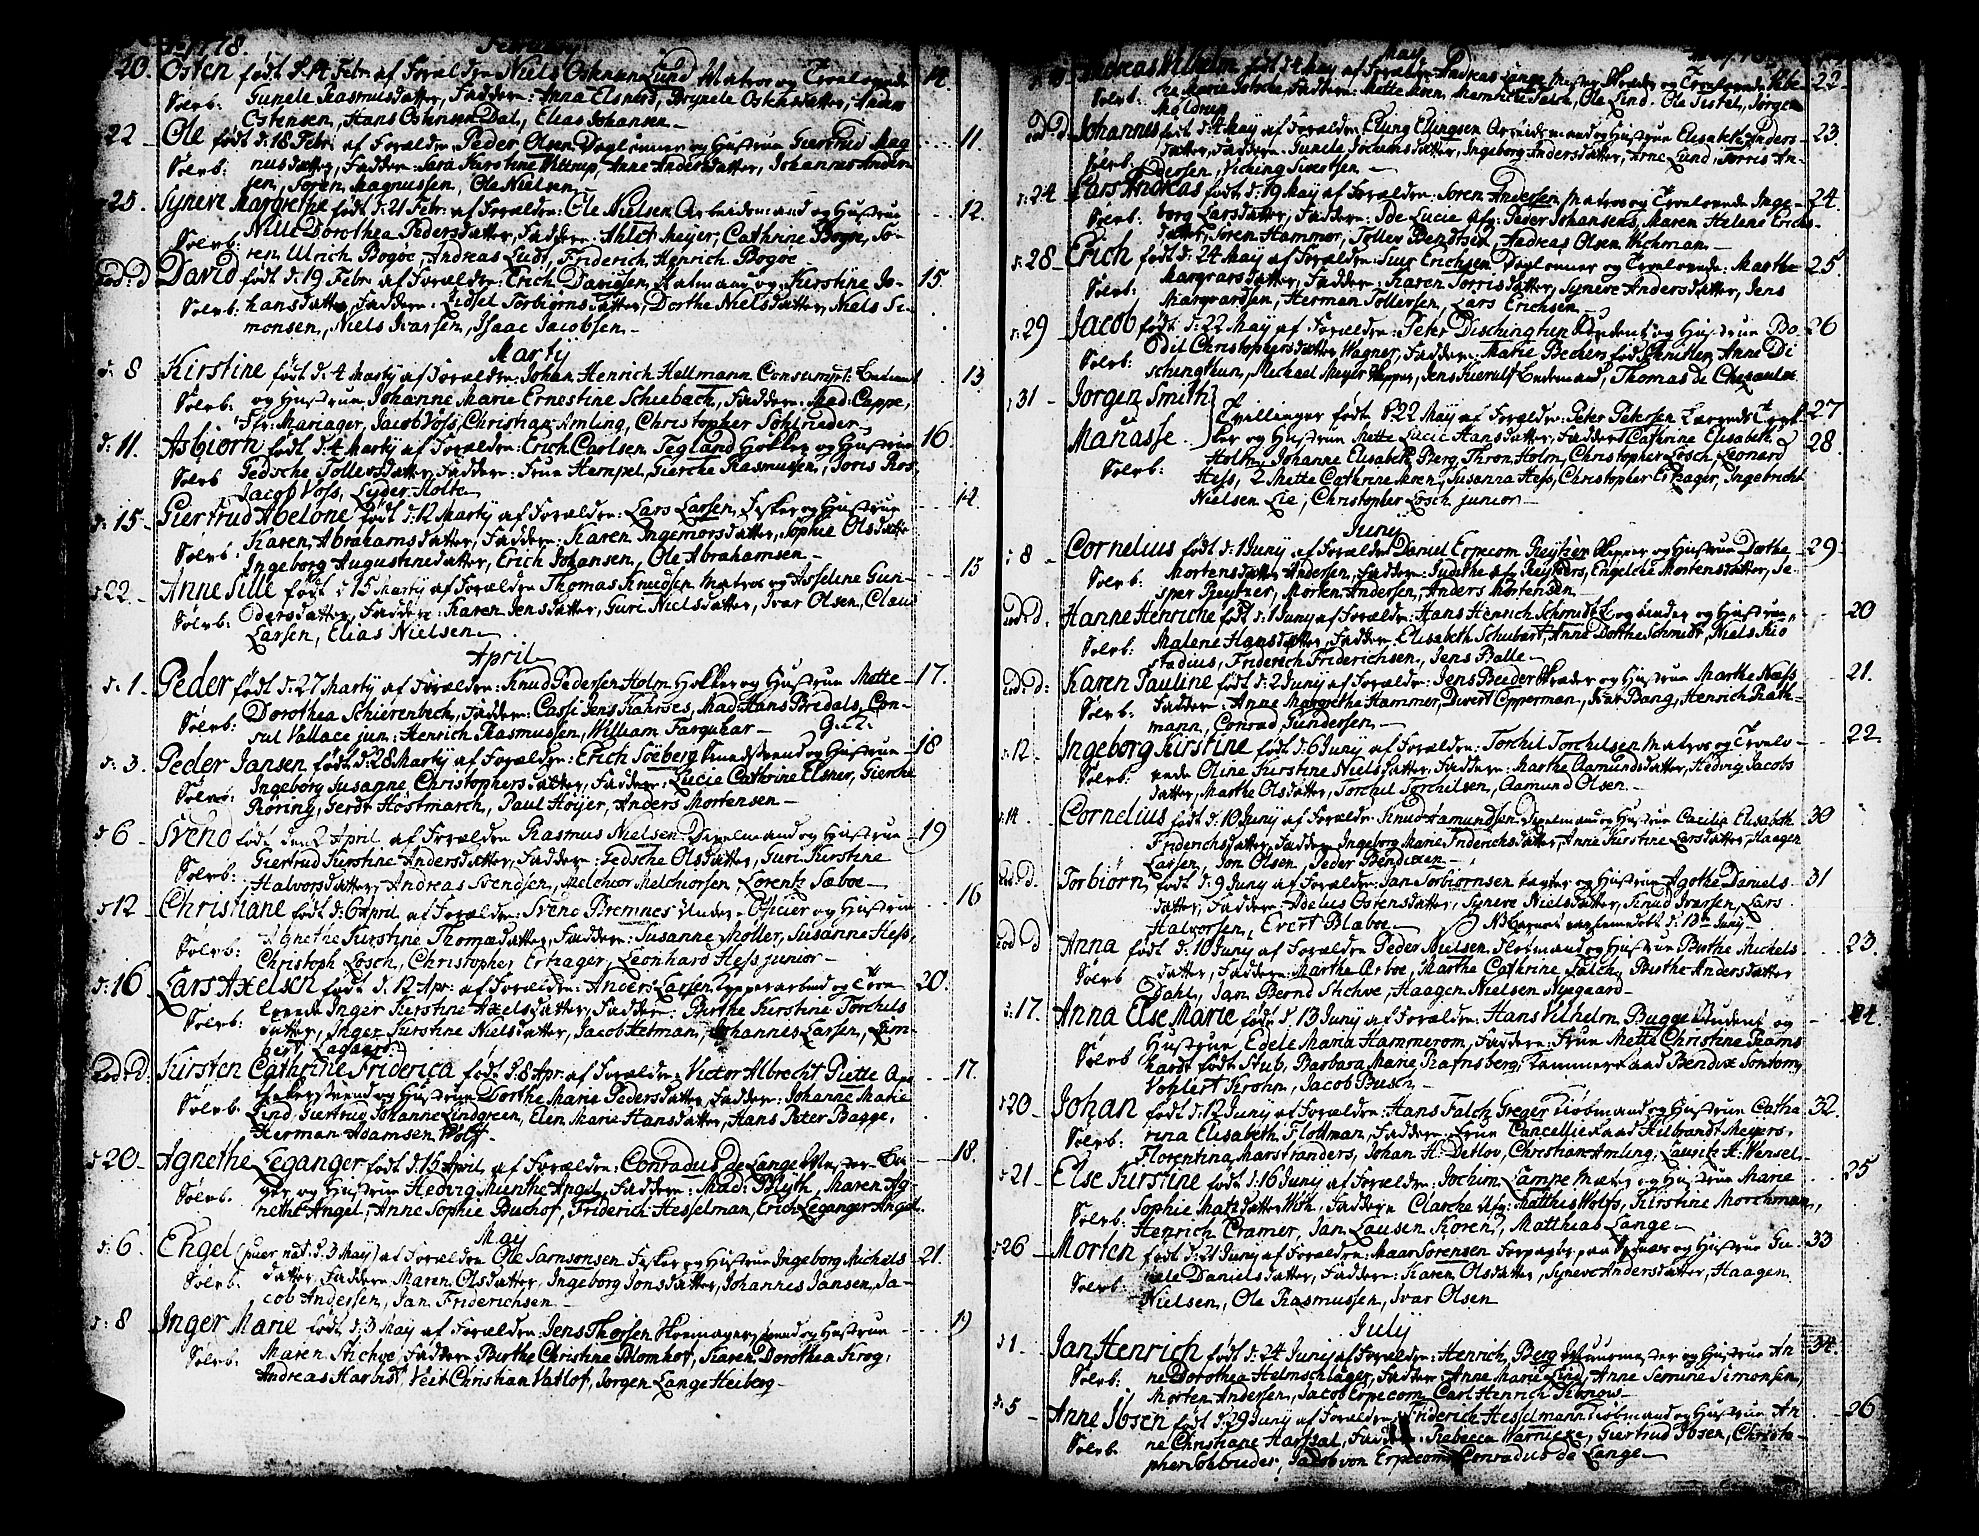 Ao 1778. February
20. Osten født d: 14 Febr: af Forældre Niels Ostensen Lund Matros og Trolovede 14.
Sølvb: Gunele Rasmusdatter, Faddere: Anna Elsners, Brynele Ostensdatter, Anders
Ostensen, Hans Ostensen Dal, Elias Johansen
22 Ole født d: 18 Febr: af Forældre Peder Olsen Dagl: onner og Hustrue Giertrud Mag 11
Sølvb: nusdatter, Faddere: Sara Kirstine Wittrup, Anne Andersdatter, Johannes Ander
sen, Søren Magnussen, Ole Nielsen
25. Synneve Margrethe født d: 21 Febr: af Forældre: Ole Nielsen Arbeidsmand og Hustrue 12.
Sølvb: Nille Dorothea Pedersdatter, Faddere: Ahlet Meyer, Cathrine Bogøe, Sø-
ren Ulrich Bogøe, Andreas Ludt, Friderich Henrich Bogøe
eod: d: David født d: 19 Febr: af Forældre: Erich Davidsen, og Kirstine Jo- 15.
Sølvb: hansdatter, Faddere: Lidsel Torbiørnsdatter, Dorthe Nielsdatter, Niels Si-
monsen, Niels Ivarsen, Isaac Jacobsen
Martÿ
d: 8 Kirstine født d: 4 Martÿ af Forældre: Johan Henrich Hellmann Consumpt: Betient 13
Sølvb: og Hustrue Johanne Marie Ernestine Schiebach, Faddere: Mad: Cappe,
Ffr: Mariager, Jacob Voss, Christian Amling, Christopher Sohtrieder
d: 11. Asbiørn født d: 4 Martÿ af Forældre: Erich Carlsen Tegland Høkker og Hustrue 16
Sølvb Fedsche Tollevsdatter, Faddere: Frue Hempel, Gierche Rasmussen, Joris Ros
Jacob Voss, Lyder Holte
d: 15 Giertrud Abelone født d: 12 Martÿ af Forældre: Lars Larsen, Fisker og Hustrue 14.
Sølvb: Karen Abrahamsdatter, Faddere: Karen Ingemorsdatter, Sophie Olsdatter
Ingeborg Augustinsdatter, Erich Johansen, Ole Abrahamsen
d 22 Anne Sille født d 15 Martÿ af Forældre Thomas Knudsen Matros og Asseline Gun- 15
Sølvb: dersdatter, Faddere: Karen Jensdatter, Guri Nielsdatter, Ivar Olsen, Claus
Larsen, Elias Nielsen
April
d: 1. Peder født d: 27 Martÿ af Forældre: Knud Pedersen Holm Høkker og Hustrue Mette 17.
Sølvb: Dorothea Schierenbech, Faddere: Cassi Jens Rahrses, Mad: Hans Bredals, Con-
sul Wallace jun: Henrich Rasmussen, William Farquhar
d: 3. Peder Jansen født d: 28 Martÿ af Forældre: Erich Søeberg og Hustrue 18
Sølvb: Ingeborg Susanne Christophersdatter, Faddere: Lucia Cathrine Elsner, Gierche
Røring, Gerdt Hostmarch, Paul Høyer, Anders Mortensen
d 6 Svend født den 2 April af Forældre Rasmus Nielsen Dregelmand og Hustrue 19
Sølvb: Giertrud Kirstine Andersdatter, Faddere: Fedsche Olsdatter, Guri Kirstine
Halvorsdatter, Andreas Svendsen, Melchior Melchiorsen, Lorentz Sæboe
d 12 Christiane født d: 6 April af Forældre: Svend Bremnes Under-Officier og Hustrue 16
Sølvb: Agnethe Kirstine Thomædatter, Faddere: Susanne Møller, Susanne Hess,
Christoph Losch, Christopher Ertzager, Leonhard Hess junior
d: 16 Lars Axelsen født d: 12 Apr: af Forældre: Anders Larsen og Tro- 20.
Sølvb: lovede Inger Kirstine Axelsdatter, Faddere: Birthe Kirstine Torchils
datter, Inger Kirstine Nielsdatter, Jacob Hetman, Johannes Larsen, Lam-
bert Lagaard
eod: d: Kirsten Cathrine Friderica født d: 8 Apr: af Forældre: Victor Albrecht Riette Apo 17.
Sølvb: og Hustrue Dorthe Marie Pedersdatter, Faddere: Johanne Marie
Lind, Giertrud Johanne Lindgreen, Elen Marie Hansdatter, Hans Peter Bagge,
Herman Adamsen Wolff
d 20 Agnethe Leganger født d: 15 April af Forældre: Conradus de Lange Borger 18.
Sølvb: og Hustrue Hedvig Munthe Angel, Faddere: Mad: Blyth, Maren Ag-
nethe Angel, Anne Sophie Buchof, Friderich Hesselman, Erich Leganger Angel
Maÿ
d: 6. Engel (puer nat: d: 3 Maÿ) af Forældre Ole Samsonsen Fisker og Hustrue Ingeborg Michels 21.
Sølvb: datter, Faddere: Maren Olsdatter, Ingeborg Jonsdatter, Johannes Jansen, Ja-
cob Andersen, Jan Friderichsen
d: 8 Inger Marie født d: 3 May af Forældre Jens Thorsen og Hustrue 19
Sølvb: Maren Stichve, Faddere Birthe Christine Blomhof, Karen Dorothea Krog,
Andreas Harbist, Veit Christian Vatlof, Jørgen Lange Heiberg
May
Andreas Vilhelm født d: May af Forældre Andreas Lange og Trolovede 22
Sølvb: Marie, Faddere: Mette Koren, Falch, Ole Lind, Ole Sistel, Jørgen
Moldrup
eod: d: Johannes født d: 14 May af Forældre: Elling Ellingsen Arbeidsmand og Hustrue Elisabeth Anders- 23.
Sølvb: datter, Faddere: Gunele Jochumsdatter, Ingeborg Andersdatter, Arne Lund, Torris An-
dersen, Viching Sivertsen
d: 24 Lars Andreas født d: 19 May af Forældre: Søren Andersen Matros og Trolovede Inge- 24.
Sølvb: borg Larsdatter, Faddere: Ide Lucie Peder Johansens, Maren Helene Erichs
datter, Søren Hammer, Tollev Bendtsen, Andreas Olsen Wichman
d: 28 Erich født d: 24 May af Forældre: Iver Erichsen Dagl: onner og Trolovede: Marthe 25
Sølvb: Margvarsdatter, Faddere: Karen Torrisdatter, Synneve Andersdatter, Jens
Margvardsen, Herman Tollersen, Lars Erichsen
d: 29 Jacob født d: 22 May af Forældre: Peter Dischingthun Student og Hustrue Bo 26
Sølvb: dil Christophersdatter Wagner, Faddere: Matie Bechen, Anne Di
schengthun, Michael Meyer, Jens, Thomas de Chezaulx
d 31 Jørgen Smith } Tvillinger født d 22 May af Forældre: Peter Petersen 27
Manasse og Hustrue Mette Lucie Hansdatter, Faddere Cathrine Elisabeth 28
Sølvb: Holm, Johanne Elisabeth Berg, Thron Holm, Christopher Losch, Leonard
Hess, 2 Mette Cathrine Koren, Susanna Hess, Christopher Ertzager, Ingebricht
Nielsen Lie, Christopher Losch junior
Junÿ
d 8 Cornelius født d: 1 Juny af Forældre Daniel Erpecom Reytzer og Hustrue Dorthe 29
Sølvb: Mortensdatter Andersen, Faddere: Judithe Reytzers, Engelche Mortensdatter, Je-
sper Reytzer, Morten Andersen, Anders Mortensen
eod: d: Hanne Henriche født d: 1 Juny af Forældre: Hans Henrich Schmidt og Hustrue 20
Sølvb: Malene Hansdatter, Faddere: Elisabeth Schubart, Anne Dorthe Schmidt, Niels Rio
stadius, Friderich Friderichsen, Jens Balle
eod: d: Karen Pauline født d: 2 Juny af Forældre: Jens Beider og Hustrue Marthe Næss 21.
Sølvb: Faddere: Anne Margrethe Hammer, Divert Opperman, Ivar Bang, Henrich Rath-
mann, Conrad Gundersen
d: 12. Ingeborg Kirstine født d: 6 Juny af Forældre: Torchil Torchilsen Matros og Trolo- 22.
Sølvb: vede Oline Kirstine Nielsdatter, Faddere: Marthe Aamundsdatter, Hedvig Jacobs
datter, Marthe Olsdatter, Torchil Torchilsen, Aamund Olsen
d: 14 Cornelius født d: 10 Juny af Forældre Knud Aamundsen og Hustrue Cæcilia Elisabeth 30
Friderichsdatter, Faddere Ingeborg Marie Friderichsdatter, Anne Kirstine Larsdatter, Haagen
Larsen, Jon Olsen, Peder Bendixen
eod: d: Torbiørn født d: 9 Juny af Forældre: Jan Torbiørnsen og Hustrue Agothe Daniels- 31
datter, Faddere Adelus Ostensdatter, Synneve Nielsdatter, Knud Ivarsen, Lars
Halvorsen, Evert Blaboe NB Barnet hiemmedøbt d: 13de Juny
eod d Anna født d: 10 Juny af Forældre Peder Nielsen og Hustrue Birthe Michels 23.
Sølvb datter, Faddere: Marthe Arboe, Marthe Cathrine Falch, Birthe Andersdatter
Dahl, Jan Bernd Stichve, Haagen Nielsen Nyegaard
d: 17. Anna Else Marie født d: 13 Juny af Forældre: Hans Vilhelm Bugge Student og 24.
Sølvb Hustrue Edele Maria Hammerom, Faddere: Frue Mette Christine Teams
hardt født Stub, Barbara Marie Rafnsberg, Kammerraad Bendix Fontony
Vohlert Krohn, Jacob Busch
d 20 Johan født d: 12 Juny af Forældre: Hans Falch Greger Kiøbmand og Hustrue Catha 32.
Sølvb: rina Elisabeth Flottman, Faddere: Frue Cancellieraad Hilbrandt Meyers,
Florentina Marstranders, Johan H: Detlov, Christian Amling, Lauritz H: Wensel
d 21 Else Kirstine født d: 16 Juny af Forældre: Jochim Lampe og Hustrue Marie 25
Sølvb: Sophie Matzdatter With, Faddere Clarche Matthis Wolfs, Kirstine Morchman,
Henrich Cramer, Jan Lausen Koren, Matthias Lange
d 26 Morten født d: 21 Juny af Forældre: Maar Sørensen og Hustrue Gu- 33
Sølvb: nele Danielsdatter, Faddere: Karen Olsdatter, Synneve Andersdatter, Haagen
Nielsen, Ole Rasmussen, Ivar Olsen
Julÿ
d 1 Jan Henrich født d: 24 Juny af Forældre: Henrich Berg Muurmester og Hustrue An 34.
Sølvb: ne Dorothea Helmschlager, Faddere: Anne Marie Lind, Anne Semine Simonsen,
Morten Andersen, Jacob Erpecom, Carl Henrich
d: 5 Anne Ibsen født d: 29 Juny af Forældre: Friderich Hesselmann Kiøbmand og Hustrue An 26
Sølvb: ne Christiane Hartsal, Faddere: Rebecca Warniecke, Giertrud Ibsen, Christo-
pher Sohtrieder, Jacob von Erpecom, Conradus de Lange